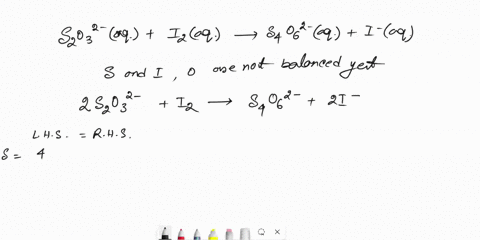 S₂O₃²⁻(aq.) + I₂(aq.) → S₄O₆²⁻(aq) + I⁻(aq)
S and I, O are not balanced yet
2S₂O₃²⁻ + I₂ → S₄O₆²⁻ + 2I⁻
L.H.S. = R.H.S.
S = 4